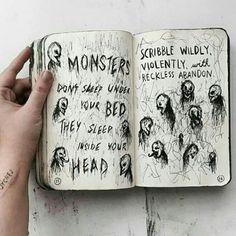 MONSTERS
DON'T SLEEP UNDER
YOUR BED
THEY SLEEP
INSIDE YOUR
HEAD
SCRIBBLE WILDLY,
VIOLENTLY, with
RECKLESS ABANDON.